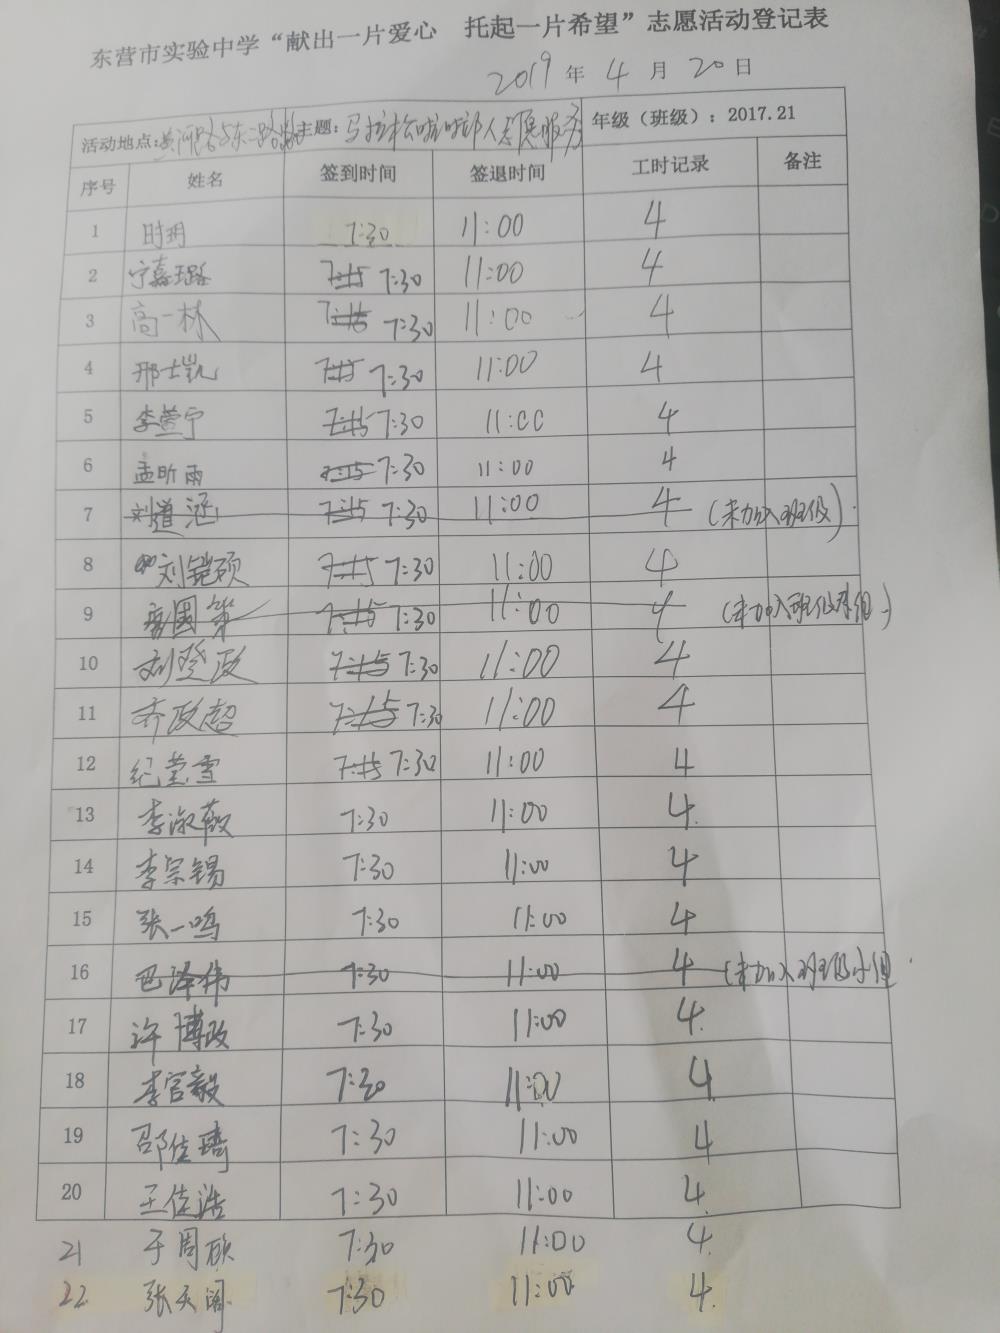 东营市实验中学“献出一片爱心 托起一片希望”志愿活动登记表
2019年4月20日
活动地点:黄河路与东二路 主题:马拉松啦啦队人志愿服务 年级(班级):2017.21
序号 姓名 签到时间 签退时间 工时记录 备注
1 时玥 7:30 11:00 4
2 宁嘉璐 7:15 7:30 11:00 4
3 高一林 7:15 7:30 11:00 4
4 邢士凯 7:15 7:30 11:00 4
5 李萱宁 7:15 7:30 11:00 4
6 孟昕雨 7:15 7:30 11:00 4
7 刘道涵 7:15 7:30 11:00 4 (未加入班级)
8 刘铠硕 7:15 7:30 11:00 4
9 7:15 7:30 11:00 4 (未加入班级小组)
10 刘登政 7:15 7:30 11:00 4
11 齐政超 7:15 7:30 11:00 4
12 纪莹雪 7:15 7:30 11:00 4
13 李淑薇 7:30 11:00 4
14 李宗锡 7:30 11:00 4
15 张一鸣 7:30 11:00 4
16 巴泽伟 7:30 11:00 4 (未加入班级小组
17 许博政 7:30 11:00 4
18 李官毅 7:30 11:00 4
19 邵佳琦 7:30 11:00 4
20 王佳浩 7:30 11:00 4
21 于周硕 7:30 11:00 4
22 张天阔 7:30 11:00 4